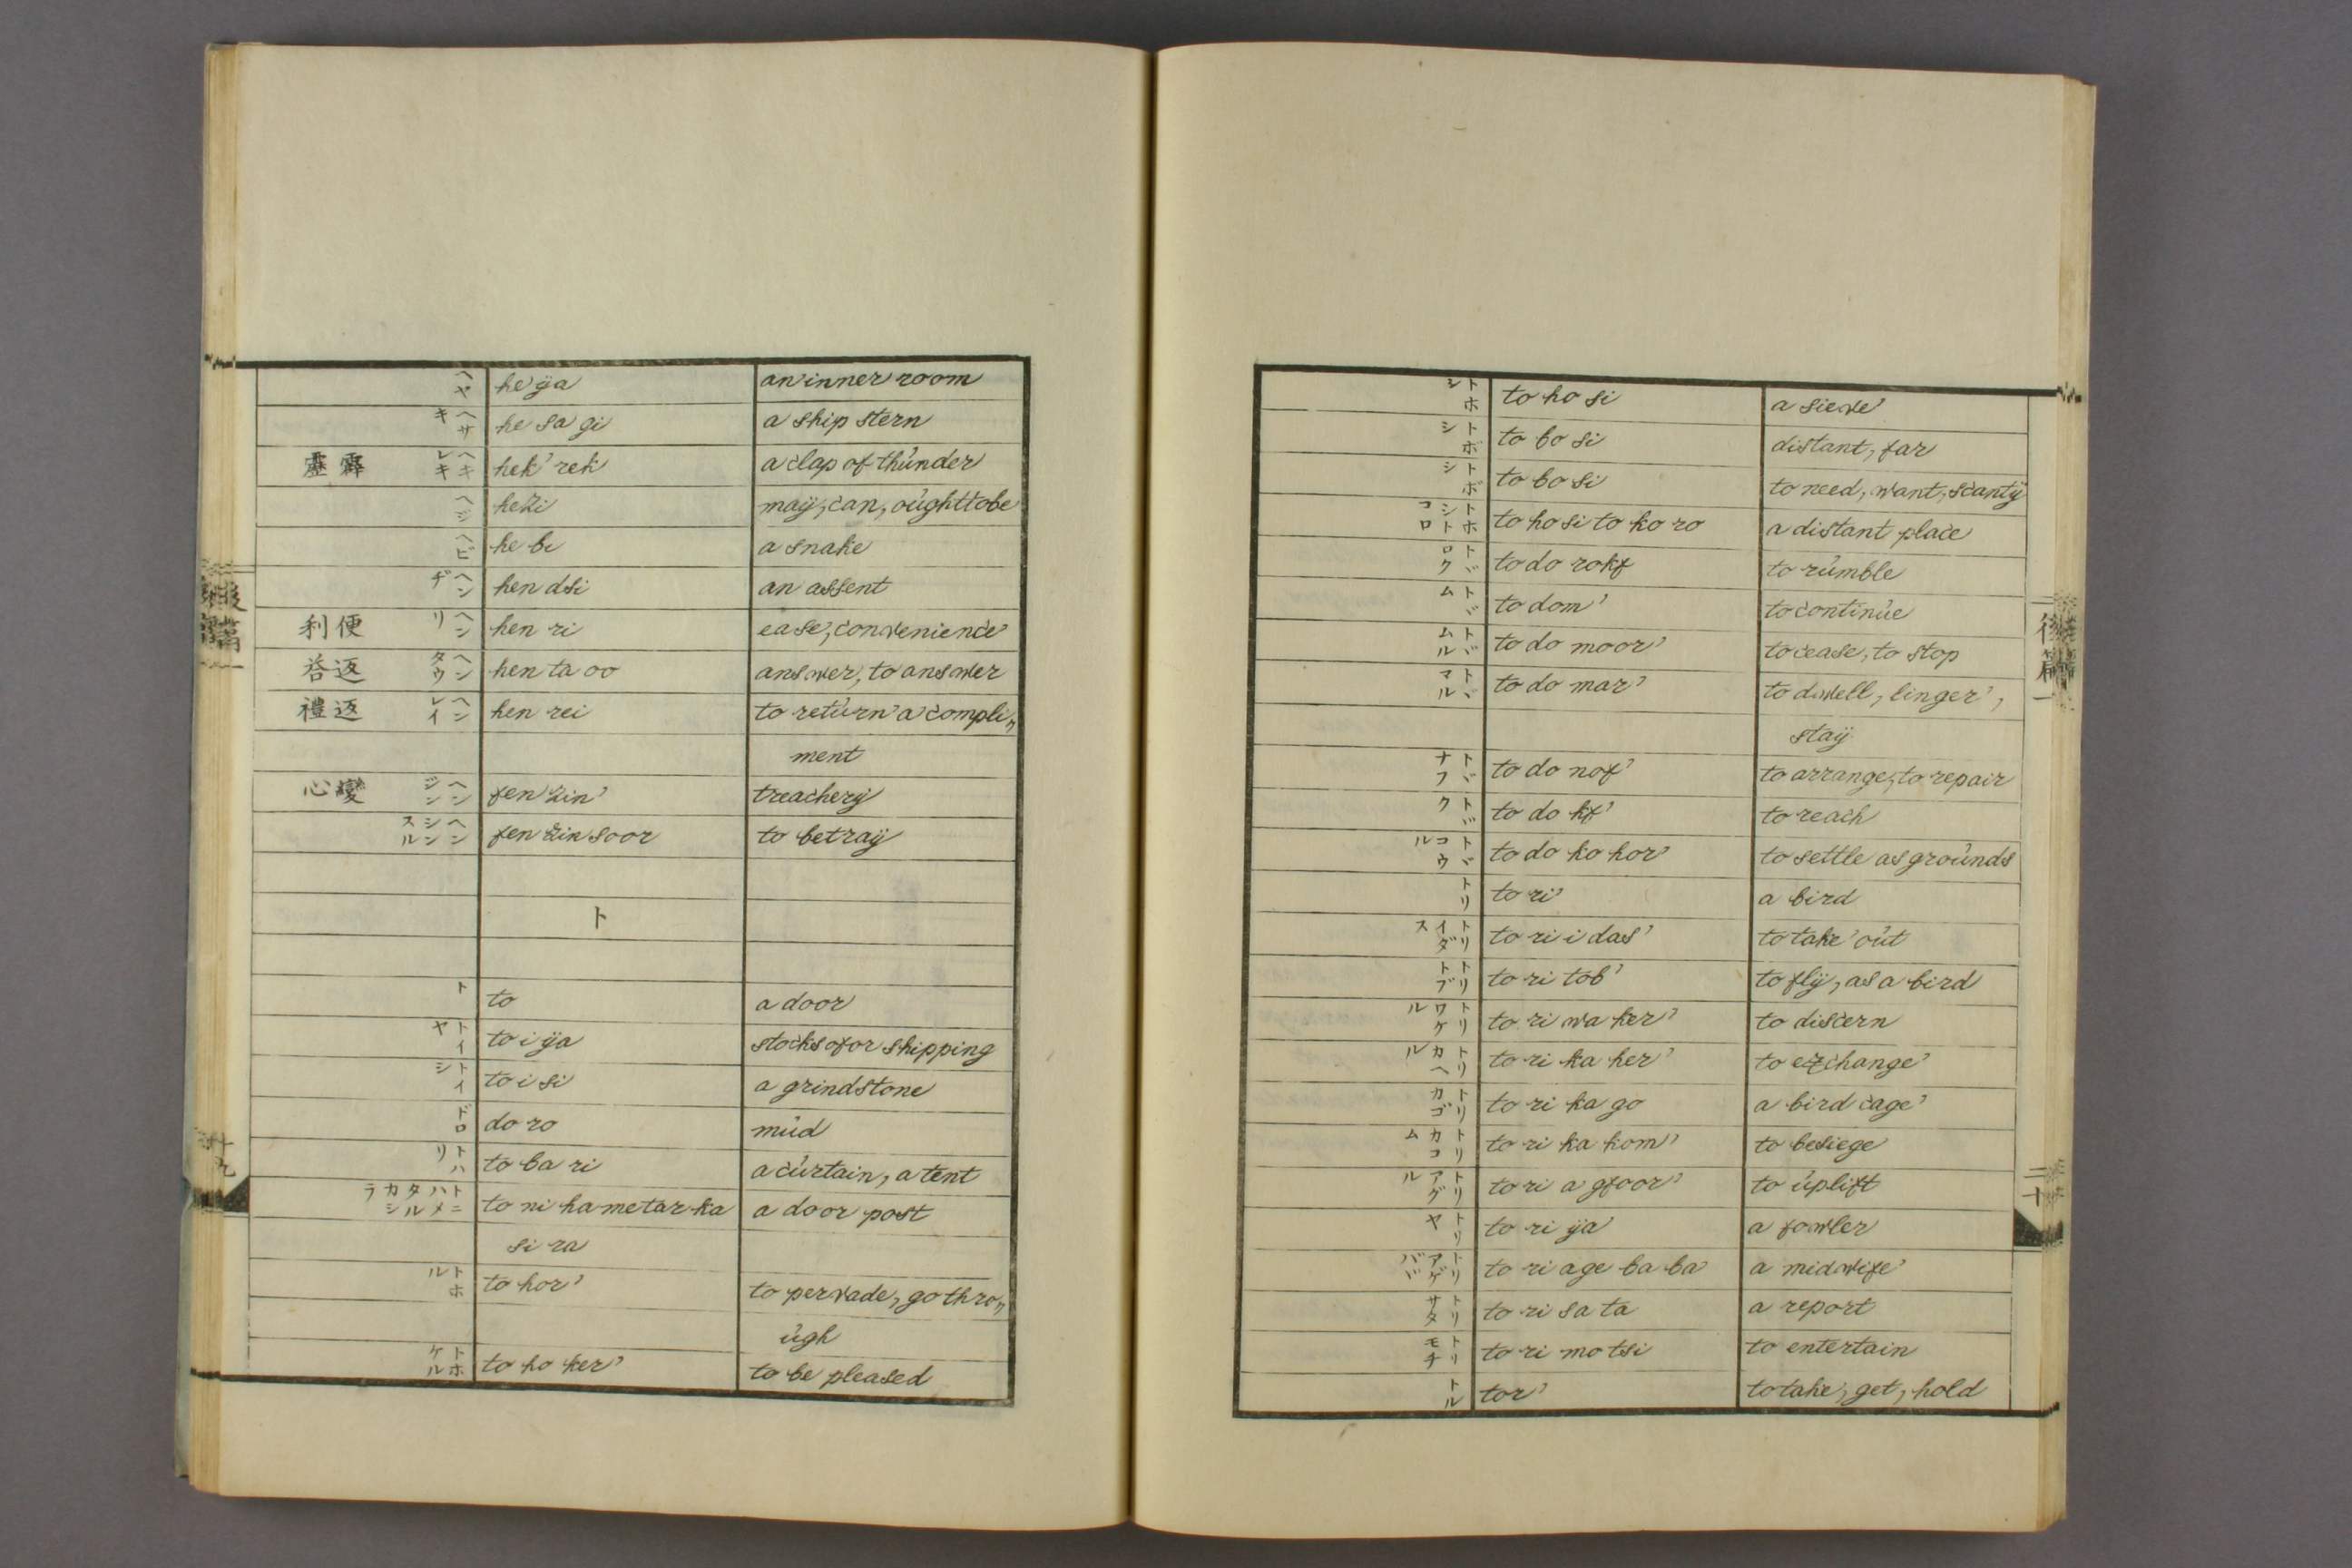 ヘヤ he ÿa an inner room
ヘサキ he sa gi a ship stern
霹靂 ヘキレキ hek' rek a clap of thunder
ヘジ hezi maÿ, can, oughttobe
ヘビ he bi a snake
ヘンヂ hen dsi an assent
便利 ヘンリ hen ri ease, convenience
返荅 ヘンタウ hen ta oo answer, to answer
返禮 ヘンレイ hen rei to return a compli〃
ment
變心 ヘンジン fen zin' treachery
ヘンシンスル fen zin soor to betraÿ
ト
ト to a door
トイヤ to i ÿa stocks ofor shipping
トイシ to i si a grindstone
ドロ do ro mud
トハリ to ba ri a curtain, a tent
トニハメタルカシラ to ni ha me tar ka a door post
si ra
トホル to hor' to pervade, go thro〃
ugh
トホケル to ho ker' to be pleased
十九
トホシ to ho si a sieve
トボシ to bo si distant, far
トボシ to bo si to need, want, scantÿ
トホシトコロ to ho si to ko ro a distant place
トヾロク to do rokf to rumble
トヾム to dom' to continue
トヾムル to do moor' to cease, to stop
トヾマル to do mar' to dwell, linger,
staÿ
トヾナフ to do nof' to arrange, to repair
トヾク to do kf' to reach
トヾコウル to do ko hor' to settle as grounds
トリ to ri a bird
トリイダス to ri i das' to take out
トリトブ to ri tob' to flÿ, as a bird
トリワケル to ri wa ker' to discern
トリカヘル to ri ka her' to exchange
トリカゴ to ri ka go a bird cage
トリカコム to ri ka kom' to besiege
トリアグル to ri a gfoor' to uplift
トリヤ to ri ÿa a fowler
トリアゲバヾ to ri age ba ba a midwife
トリサタ to ri sa ta a report
トリモチ to ri mo tsi to entertain
トル tor' to take, get, hold
後篇
二十